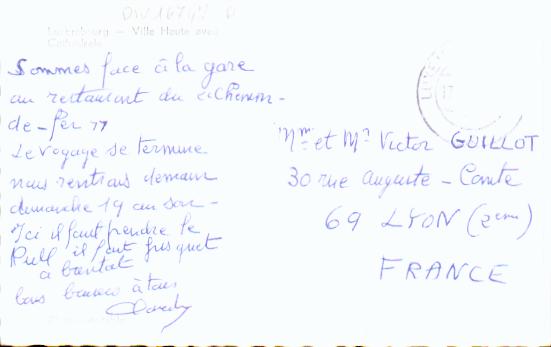 Luxembourg — Ville Haute avec
Cathédrale
Sommes face à la gare
au restaurant du "Chemin-
de-fer"
Le voyage se termine
nous rentrons demain
dimanche 19 au soir -
Ici il faut prendre le
Pull il fait frisquet
à bientôt
bons baisers à tous
Mme et Mr Victor GUILLOT
30 rue Auguste - Comte
69 LYON (2ème)
FRANCE